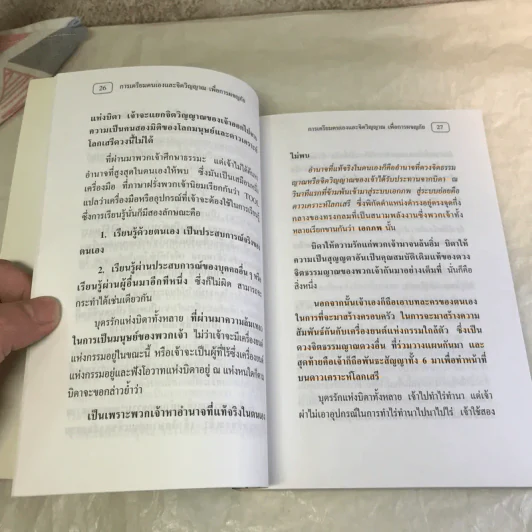 26
การเตรียมตรองและจิตวิญญาณ เพื่อการผจญภัย
แห่งบิดา เจ้าจะแยกจิตวิญญาณของเจ้าออกไม่
ความเป็นตนสองมิติของโลกมนุษย์และดาวเคราะห์
โลกเสรีดวงนี้ไม่ได้
ที่ผ่านมาพวกเจ้าศึกษาธรรมะ แต่เจ้าไม่ได้
อำนาจที่สูงสุดในตนเองให้พบ ซึ่งมันเป็นเสมือน
เครื่องมือ ที่ภาษาฝรั่งพวกเจ้านิยมเรียกกันว่า TOOL
แปลว่าเครื่องมือหรืออุปกรณ์ที่เจ้าจะต้องใช้ในการเรียนรู้
ซึ่งการเรียนรู้นั้นก็มีสองลักษณะคือ
1. เรียนรู้ด้วยตนเอง เป็นประสบการณ์จริงของ
ตนเอง
2. เรียนรู้ผ่านประสบการณ์ของบุคคลอื่นๆ หรือ
เรียนรู้ผ่านผู้อื่นมาอีกทีหนึ่ง ซึ่งก็ไม่ผิด สามารถจะ
กระทำได้เช่นเดียวกัน
บุตรรักแห่งบิดาทั้งหลาย ที่ผ่านมาความล้มเหลว
ในการเป็นมนุษย์ของพวกเจ้า ไม่ว่าเจ้าจะมีเครื่องยนต์
แห่งกรรมอยู่ในขณะนี้ หรือเจ้าจะเป็นผู้ที่ไร้ซึ่งเครื่องยนต์
แห่งกรรมอยู่และฟังโอวาทแห่งบิดาอยู่ ณ แห่งหนใดก็ตาม
บิดาจะขอกล่าวย้ำว่า
เป็นเพราะพวกเจ้าหาอำนาจที่แท้จริงในตนเอง
การเตรียมตรองและจิตวิญญาณ เพื่อการผจญภัย
27
ไม่พบ
อำนาจที่แท้จริงในตนเองก็คืออำนาจที่ดวงจิตธรรม
ญาณหรือจิตวิญญาณของเจ้าได้รับประทานจากบิดา ณ
วินาทีแรกที่ข้ามพ้นเข้ามาสู่ระบบเอกภพ สู่ระบบย่อยคือ
ดาวเคราะห์โลกเสรี ซึ่งพิกัดตำแหน่งดำรงอยู่ตรงจุดกึ่ง
กลางของทรงกลมที่เป็นสนามพลังงานซึ่งพวกเจ้าทั้ง
หลายเรียกขานกันว่า เอกภพ นั้น
บิดาให้ความรักแก่พวกเจ้ามาจนล้นอิ่ม บิดาให้
ความเป็นสูญญตาอันเป็นคุณสมบัติเดิมแท้ของดวง
จิตธรรมญาณของพวกเจ้ากันมาอย่างเต็มที่ นั่นก็คือ
สิ่งหนึ่ง
นอกจากนั้นเจ้าเองก็ถือเอาบทละครของตนเอง
ในการที่จะมาสร้างครอบครัว ในการจะมาสร้างความ
สัมพันธ์กันกับเครื่องยนต์แห่งกรรมใกล้ตัว ซึ่งเป็น
ดวงจิตธรรมญาณดวงอื่น ที่ร่วมวางแผนกันมา และ
สุดท้ายคือเจ้าก็ถือพันธะสัญญาทั้ง 6 มาเพื่อทำหน้าที่
บนดาวเคราะห์โลกเสรี
บุตรรักแห่งบิดาทั้งหลาย เจ้าไปทำไร่ทำนา แต่เจ้า
ฝ่าไม่เอาอุปกรณ์ในการทำไร่ทำนาไปนาไปไร่ เจ้าใช้สอง